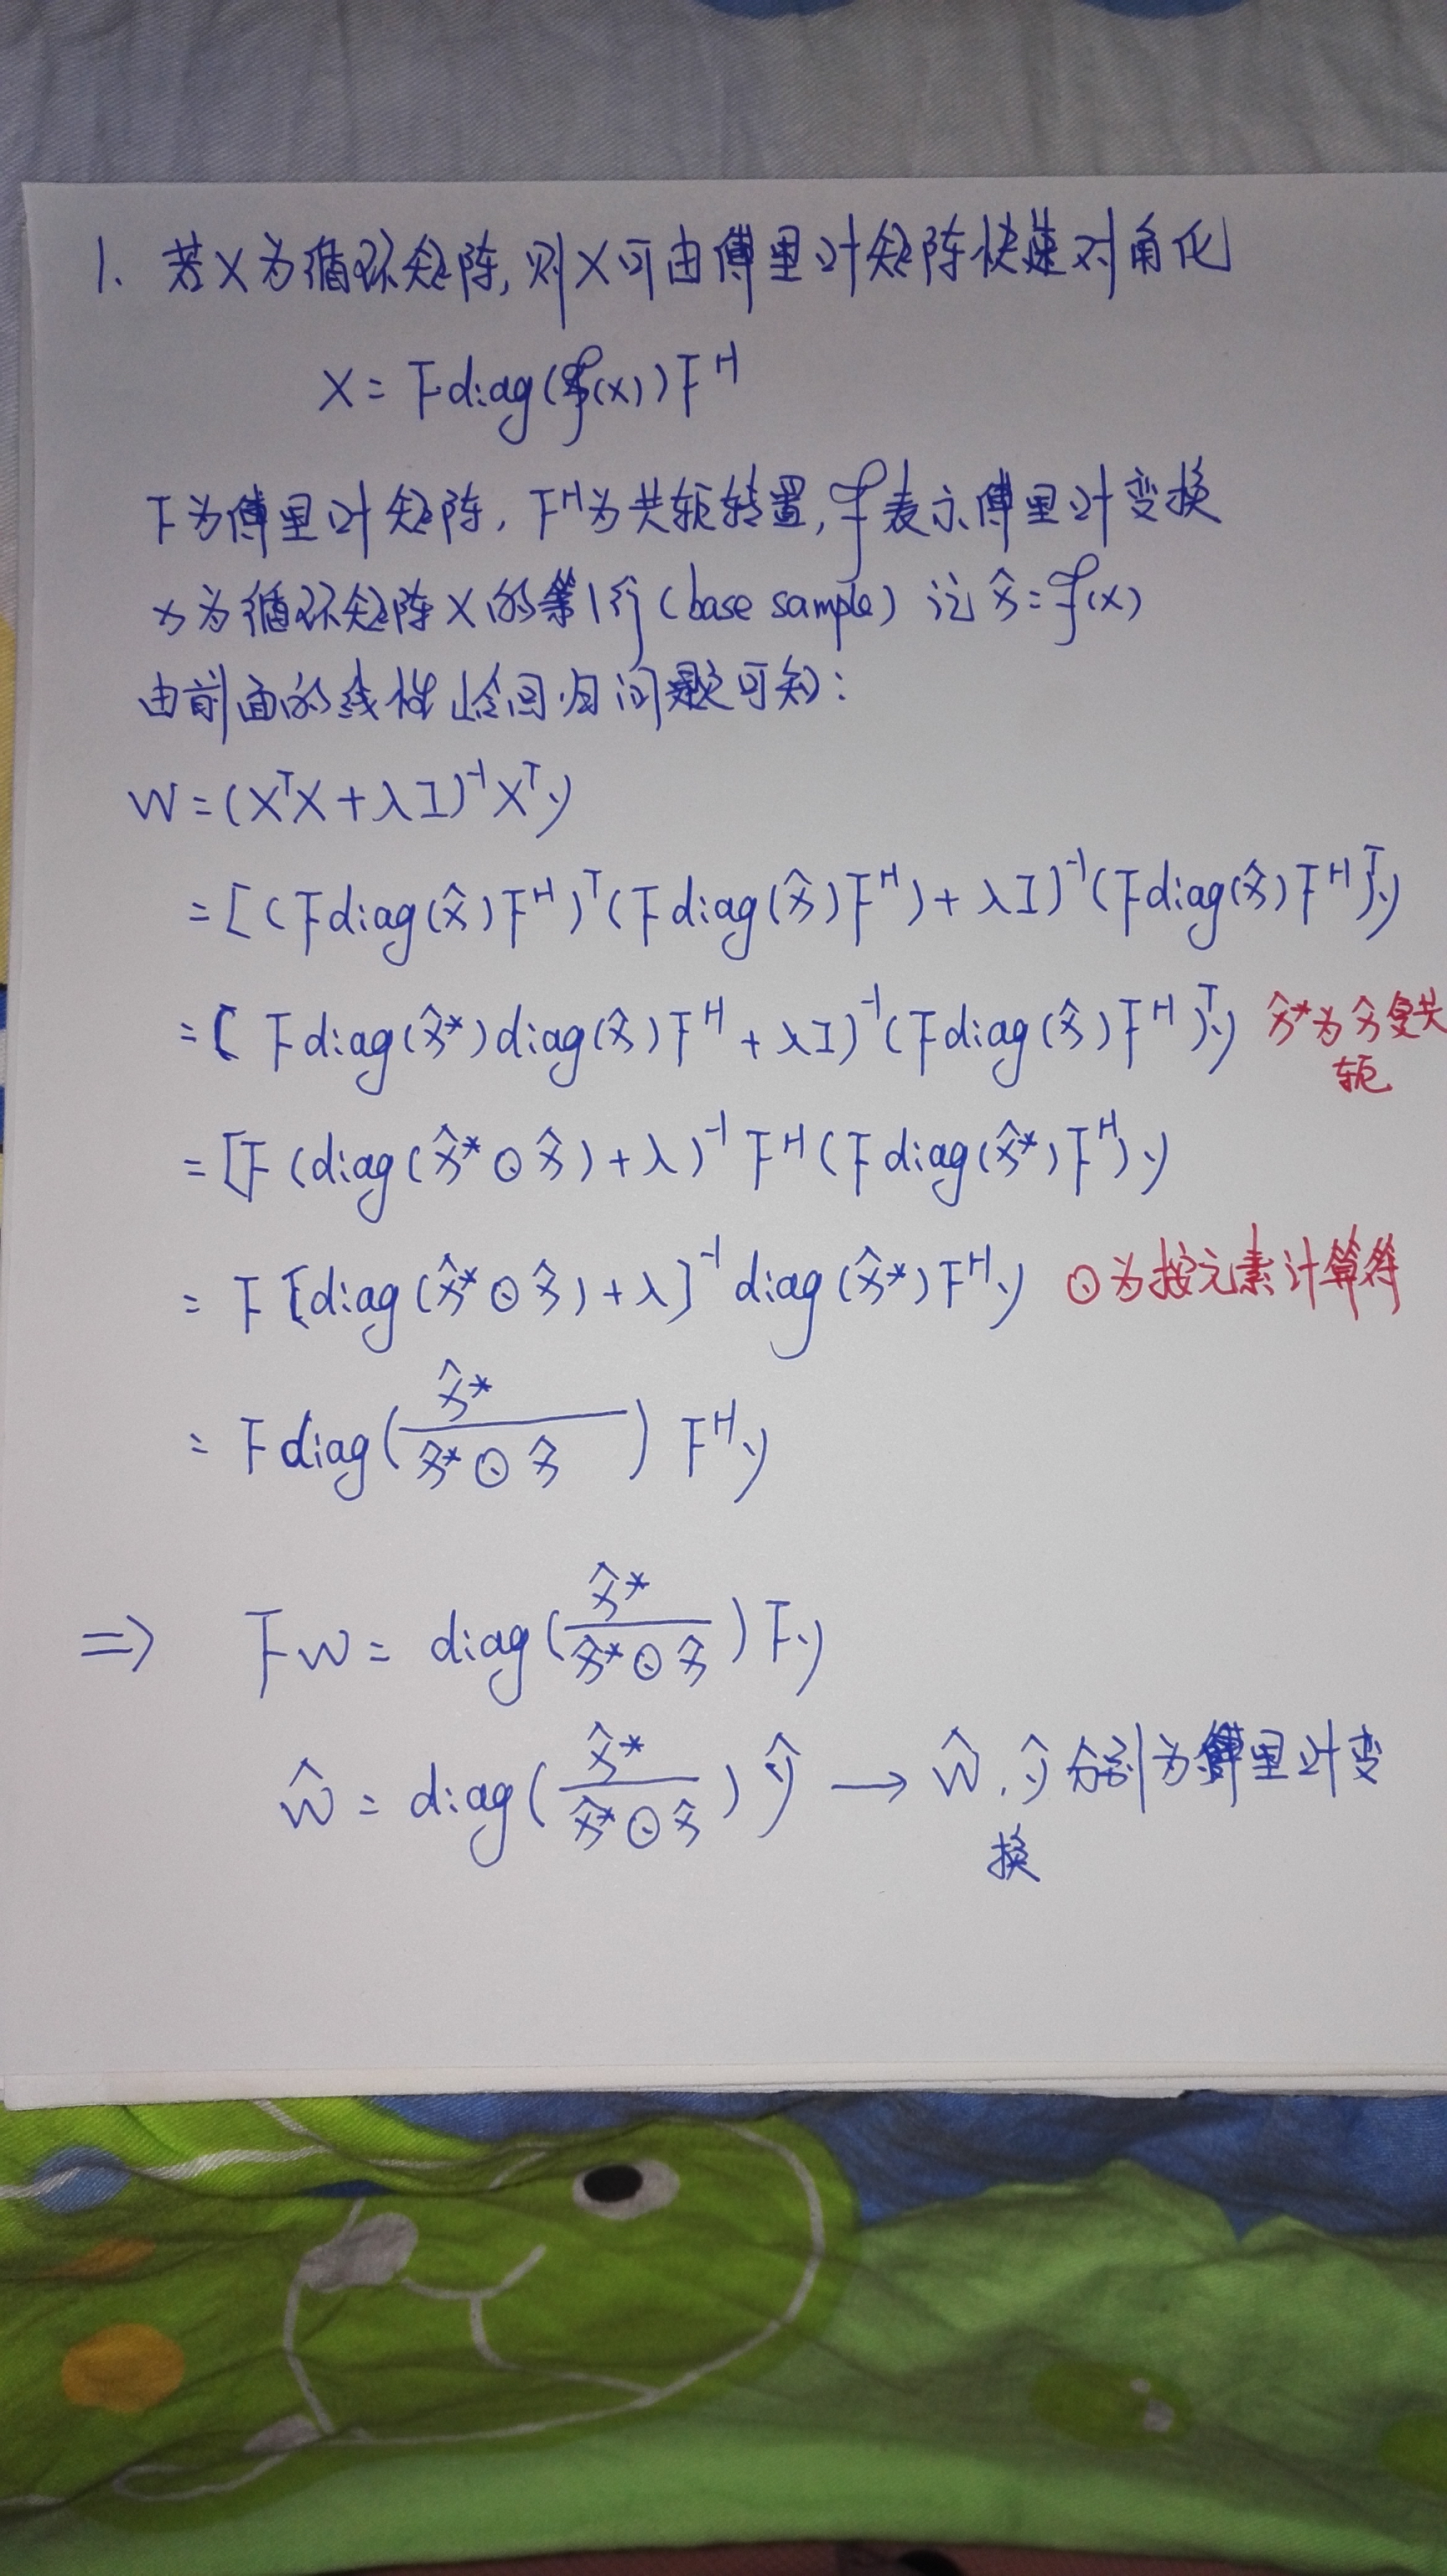 1. 若X为循环矩阵,则X可由傅里叶矩阵快速对角化
X = Fdiag(ℱ(x))F^H
F为傅里叶矩阵, F^H为共轭转置, ℱ表示傅里叶变换
x为循环矩阵X的第1行(base sample) 记 x̂=ℱ(x)
由前面的线性岭回归问题可知:
W = (X^TX + λI)^-1 X^Ty
= [(Fdiag(x̂)F^H)^T(Fdiag(x̂)F^H) + λI)^-1(Fdiag(x̂)F^H)^Ty
= ( Fdiag(x̂*)diag(x̂)F^H + λI)^-1(Fdiag(x̂)F^H)^Ty x̂*为x̂复共轭
= [F (diag(x̂*⊙x̂)+λ)^-1 F^H(Fdiag(x̂*)F^H)y
= F [diag(x̂*⊙x̂)+λ]^-1 diag(x̂*)F^Hy ⊙为按元素计算符
= Fdiag(x̂* / x̂*⊙x̂) F^Hy
=> Fw = diag(x̂* / x̂*⊙x̂)Fy
ŵ = diag(x̂* / x̂*⊙x̂)ŷ → ŵ, ŷ分别为傅里叶变换